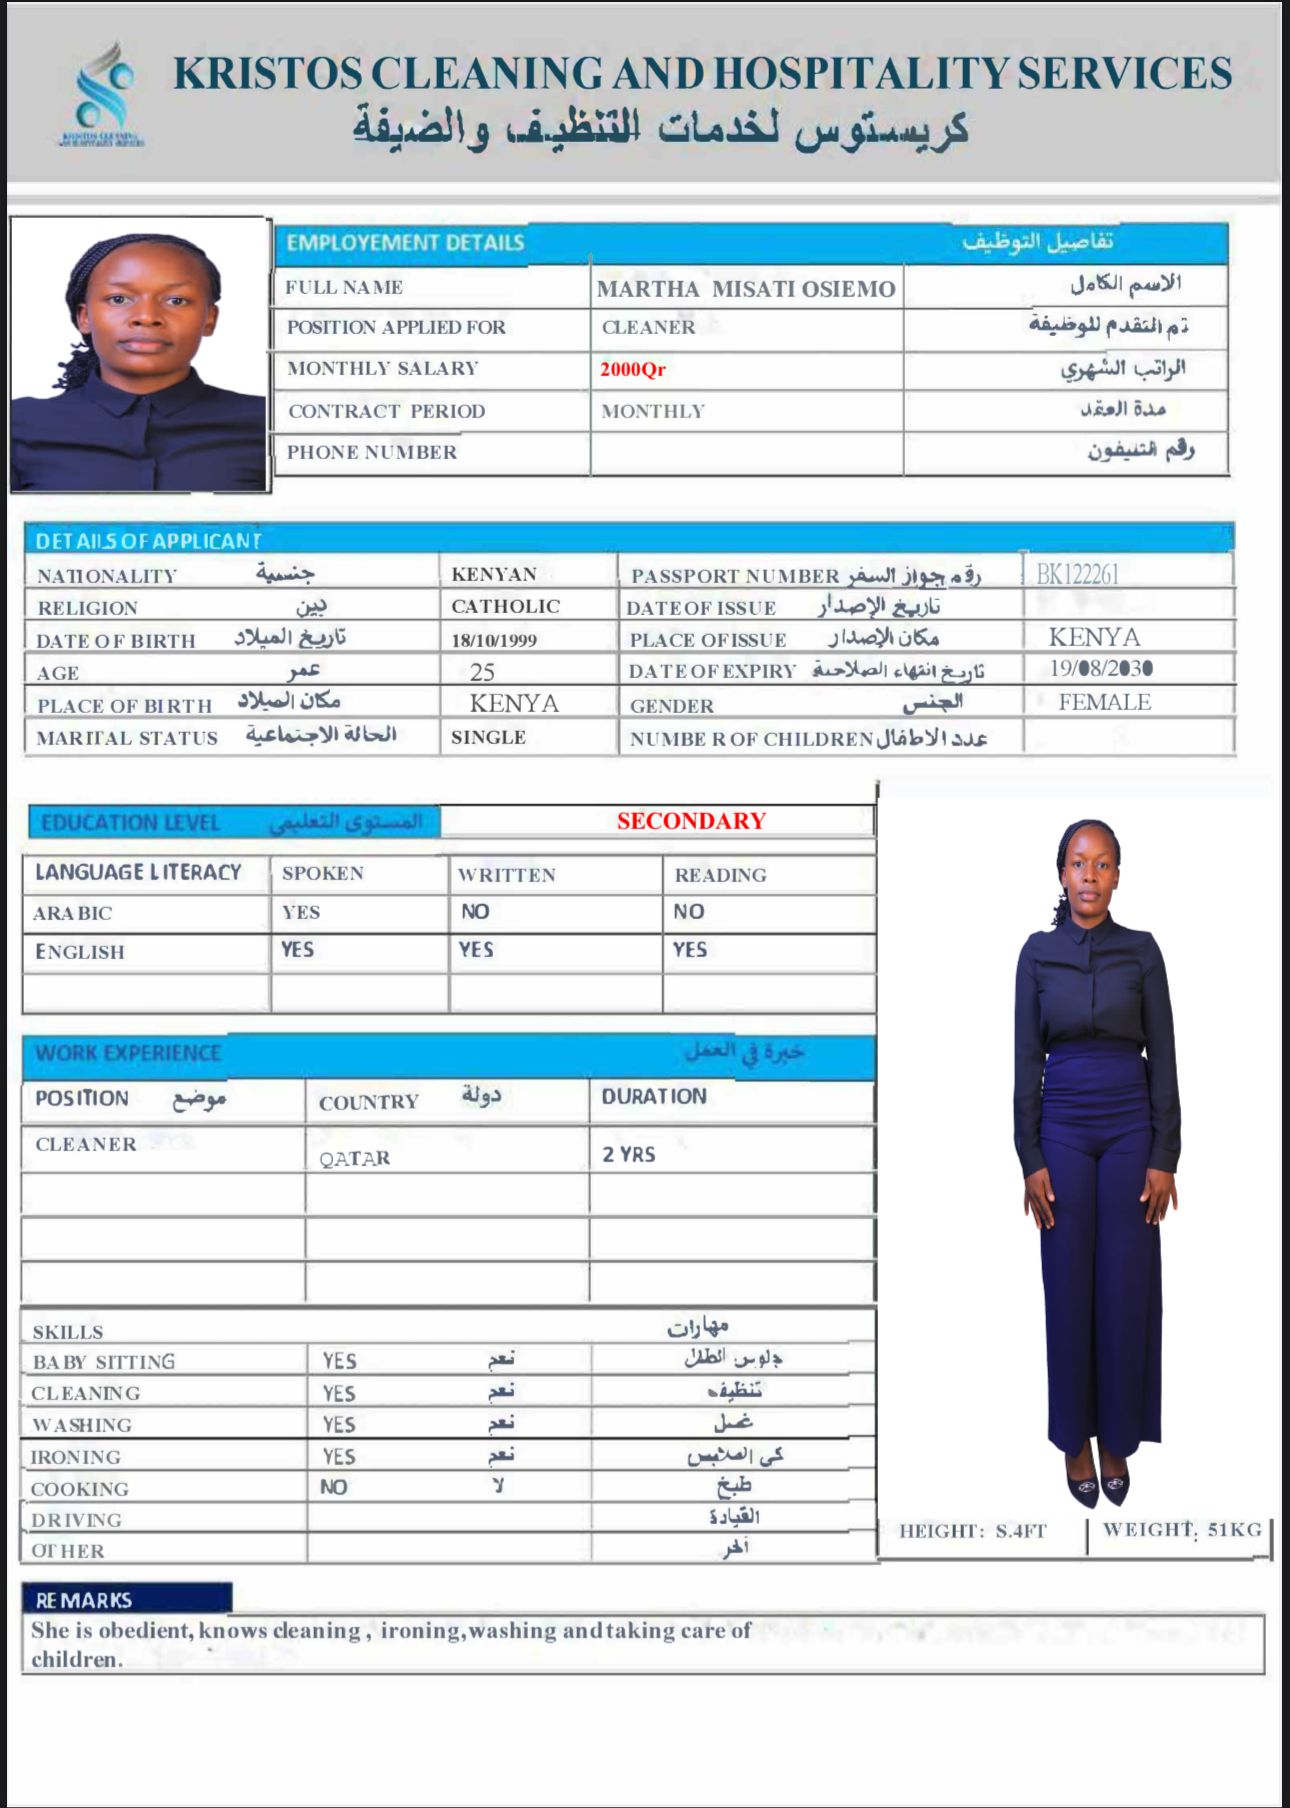 KRISTOS CLEANING AND HOSPITALITY SERVICES
كريستوس لخدمات التنظيف والضيفة
KRISTOS CLEANING
AND HOSPITALITY SERVICES
EMPLOYEMENT DETAILS تفاصيل التوظيف
FULL NAME MARTHA MISATI OSIEMO الاسم الكامل
POSITION APPLIED FOR CLEANER تم التقدم للوظيفة
MONTHLY SALARY 2000Qr الراتب الشهري
CONTRACT PERIOD MONTHLY مدة العقد
PHONE NUMBER رقم التليفون
DETAILS OF APPLICANT
NATIONALITY جنسية KENYAN PASSPORT NUMBER رقم جواز السفر BK122261
RELIGION دين CATHOLIC DATE OF ISSUE تاريخ الإصدار
DATE OF BIRTH تاريخ الميلاد 18/10/1999 PLACE OF ISSUE مكان الإصدار KENYA
AGE عمر 25 DATE OF EXPIRY تاريخ انتهاء الصلاحية 19/08/2030
PLACE OF BIRTH مكان الميلاد KENYA GENDER الجنس FEMALE
MARITAL STATUS الحالة الاجتماعية SINGLE NUMBER OF CHILDREN عدد الاطفال
EDUCATION LEVEL المستوى التعليمي SECONDARY
LANGUAGE LITERACY SPOKEN WRITTEN READING
ARABIC YES NO NO
ENGLISH YES YES YES
WORK EXPERIENCE خبرة في العمل
POSITION موضع COUNTRY دولة DURATION
CLEANER QATAR 2 YRS
SKILLS مهارات
BABY SITTING YES نعم جلوس الطفل
CLEANING YES نعم تنظيف
WASHING YES نعم غسل
IRONING YES نعم كي الملابس
COOKING NO لا طبخ
DRIVING القيادة
OTHER آخر
HEIGHT: S.4FT WEIGHT: 51KG
REMARKS
She is obedient, knows cleaning , ironing,washing and taking care of
children.